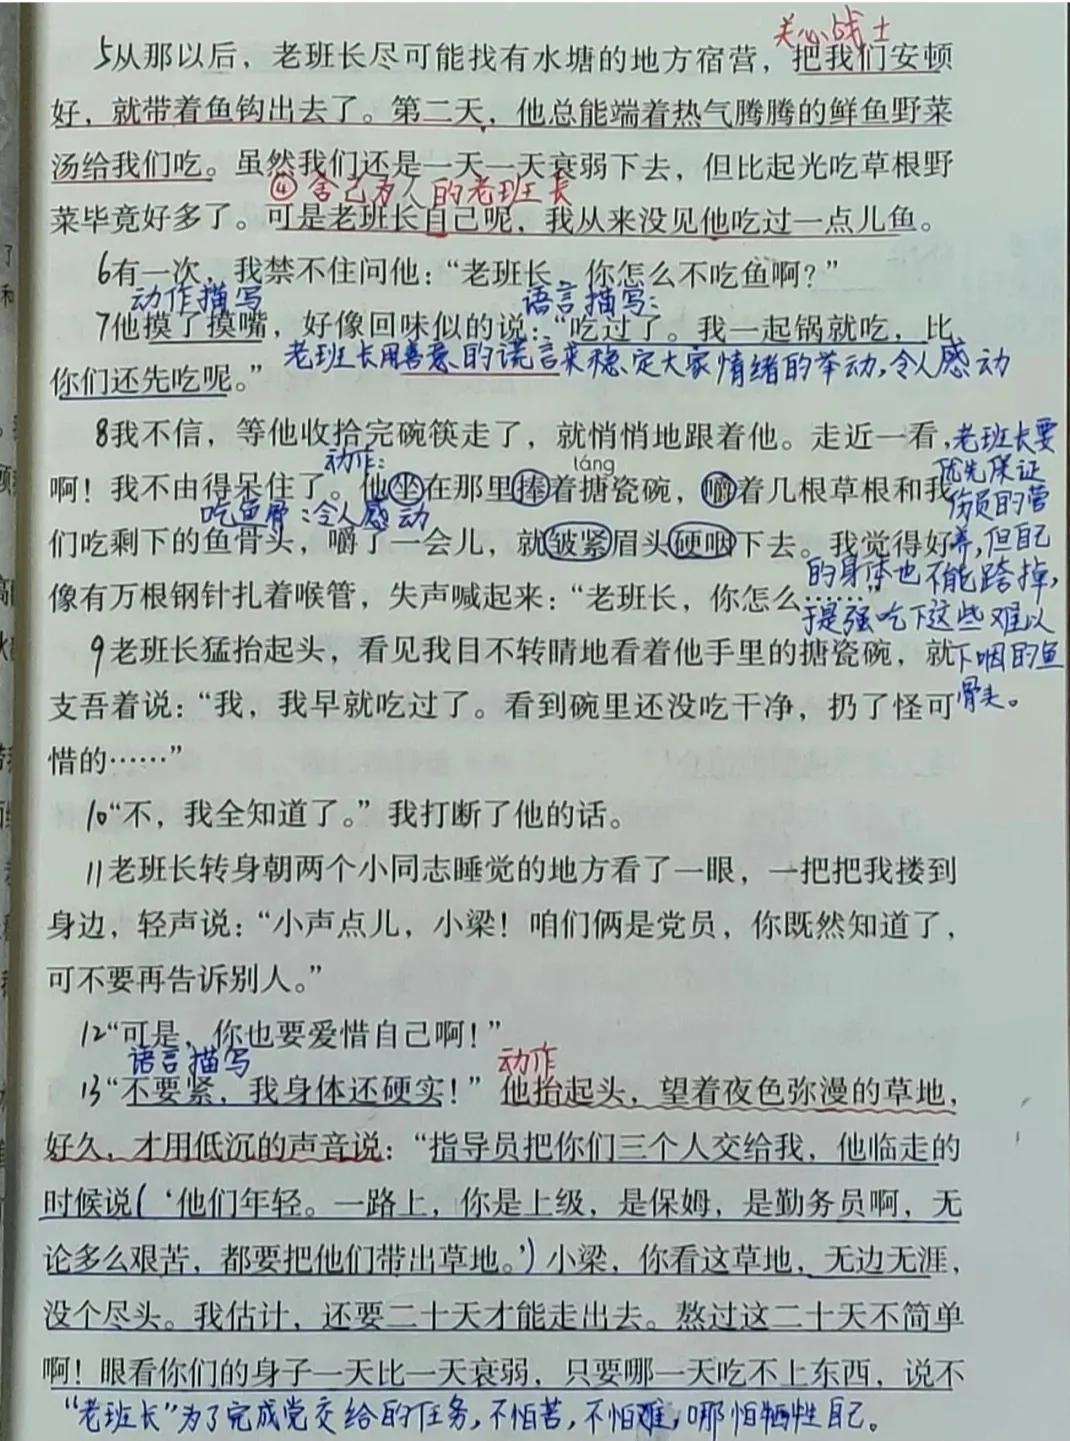 关心战士
5从那以后，老班长尽可能找有水塘的地方宿营，把我们安顿
好，就带着鱼钩出去了。第二天，他总能端着热气腾腾的鲜鱼野菜
汤给我们吃。虽然我们还是一天一天衰弱下去，但比起光吃草根野
④舍己为人的老班长
菜毕竟好多了。可是老班长自己呢，我从来没见他吃过一点儿鱼。
6有一次，我禁不住问他：“老班长，你怎么不吃鱼啊？”
动作描写 语言描写：
7他摸了摸嘴，好像回味似的说：“吃过了。我一起锅就吃，比
老班长用善意的谎言来稳定大家情绪的举动，令人感动
你们还先吃呢。”
8我不信，等他收拾完碗筷走了，就悄悄地跟着他。走近一看，
老班长要
优先保证
伤员的营
养，但自己
的身体也不能跨掉，
于是强吃下这些难以
下咽的鱼
骨头。
动作： láng
啊！我不由得呆住了。他坐在那里捧着搪瓷碗，嚼着几根草根和我
吃鱼骨：令人感动
们吃剩下的鱼骨头，嚼了一会儿，就皱紧眉头硬咽下去。我觉得好
像有万根钢针扎着喉管，失声喊起来：“老班长，你怎么……”
9老班长猛抬起头，看见我目不转睛地看着他手里的搪瓷碗，就
支吾着说：“我，我早就吃过了。看到碗里还没吃干净，扔了怪可
惜的……”
10“不，我全知道了。”我打断了他的话。
11老班长转身朝两个小同志睡觉的地方看了一眼，一把把我搂到
身边，轻声说：“小声点儿，小梁！咱们俩是党员，你既然知道了，
可不要再告诉别人。”
12“可是，你也要爱惜自己啊！”
语言描写 动作
13“不要紧，我身体还硬实！”他抬起头，望着夜色弥漫的草地，
好久，才用低沉的声音说：“指导员把你们三个人交给我，他临走的
时候说（‘他们年轻。一路上，你是上级，是保姆，是勤务员啊，无
论多么艰苦，都要把他们带出草地。’）小梁，你看这草地，无边无涯，
没个尽头。我估计，还要二十天才能走出去。熬过这二十天不简单
啊！眼看你们的身子一天比一天衰弱，只要哪一天吃不上东西，说不
“老班长”为了完成党交给的任务，不怕苦，不怕难，哪怕牺牲自己。